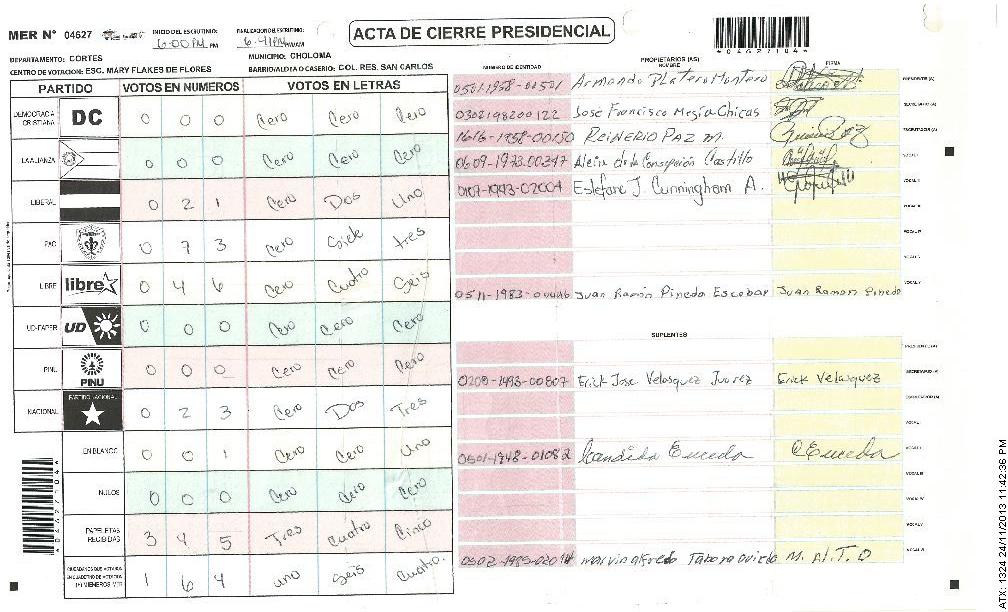 MER N° 04627
INICIO DEL ESCRUTINIO: 6:00 PM PM
FINALIZACION DEL ESCRUTINIO: 6:41 PM
ACTA DE CIERRE PRESIDENCIAL
04627104
DEPARTAMENTO: CORTES
MUNICIPIO: CHOLOMA
CENTRO DE VOTACION: ESC. MARY FLAKES DE FLORES
BARRIO/ALDEA O CASERIO: COL. RES. SAN CARLOS
PARTIDO VOTOS EN NUMEROS VOTOS EN LETRAS
DEMOCRACIA CRISTIANA DC 0 0 0 Cero Cero Cero
LA ALIANZA 0 0 0 Cero Cero Cero
LIBERAL 0 2 1 Cero Dos Uno
PAC 0 7 3 Cero Siete tres
LIBRE libre 0 4 6 Cero Cuatro Seis
UD-FAPER UD 0 0 0 Cero Cero Cero
PINU PINU 0 0 0 Cero Cero Cero
NACIONAL PARTIDO NACIONAL 0 2 3 Cero Dos Tres
EN BLANCO 0 0 1 Cero Cero Uno
NULOS 0 0 0 Cero Cero Cero
PAPELETAS RECIBIDAS 3 4 5 Tres Cuatro Cinco
CIUDADANOS QUE VOTARON EN CUADERNO DE VOTACION 1 6 4 uno Seis Cuatro.
PROPIETARIOS (AS)
NUMERO DE IDENTIDAD NOMBRE FIRMA
0501-1958-00501 Armando Platero Montero PRESIDENTE (A)
José Francisco Mejía Chicas SECRETARIO (A)
1616-1958-00130 REINERIO PAZ M. ESCRUTADOR (A)
0609-1973-00347 de la Concepción Castillo VOCAL I
0107-1993-02004 J. Cunningham A. VOCAL II
VOCAL III
VOCAL IV
VOCAL V
0511-1983- Juan Ramón Pineda Escobar Juan Ramon Pineda
SUPLENTES
PRESIDENTE (A)
0209-1993-00807 Erick Jose Velasquez Juarez Erick Velasquez SECRETARIO (A)
ESCRUTADOR (A)
VOCAL I
0501-1948-01082 Candida Euceda CEuceda VOCAL II
VOCAL III
VOCAL IV
VOCAL V
marvin alfredo Tabora M. A.T.O
ATX: 1324 24/11/2013 11:42:36 PM